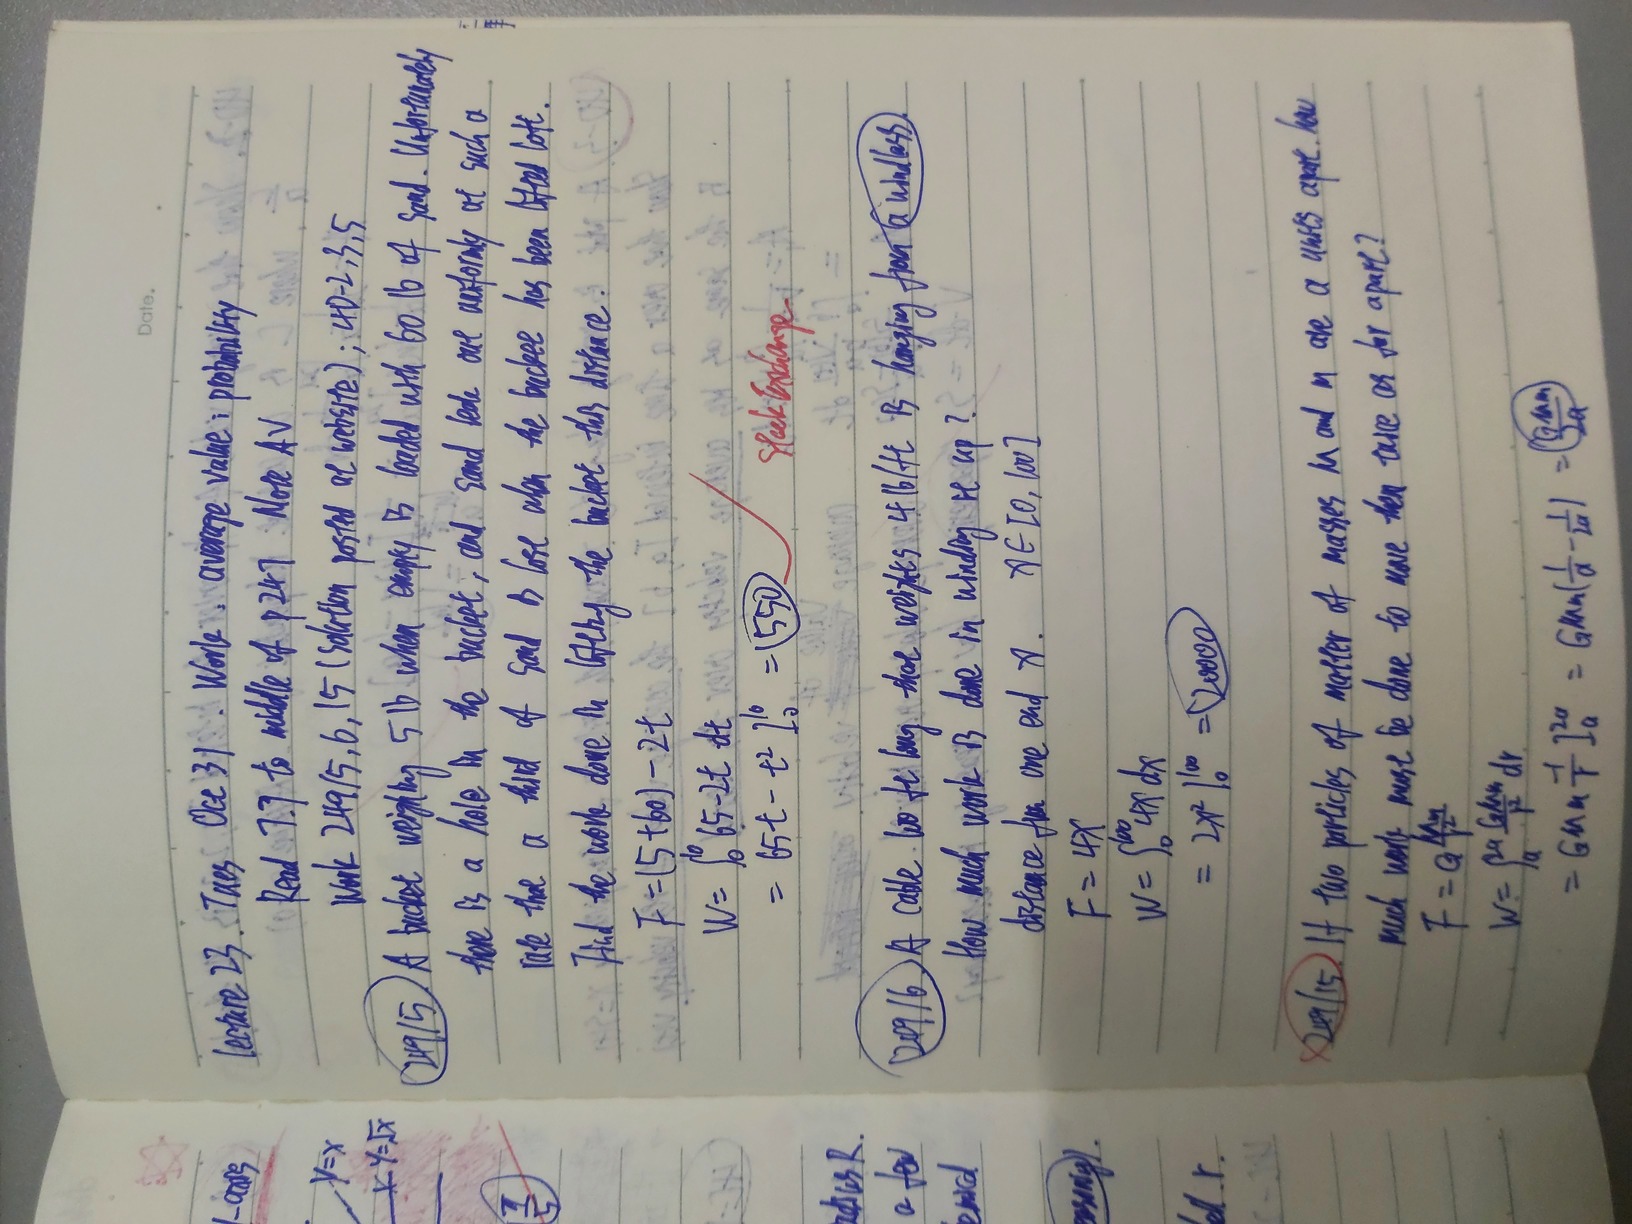 Date.
Lecture 23. Tues Oct 31. Work; average value; probability
Read 7.7 to middle of p 247 Note AV
Work 249/5, 6, 15 (Solution posted at website); 4D-2,3,5
249/5. A bucket weighing 5 lb when empty is loaded with 60 lb of sand. Unfortunately
there is a hole in the bucket, and sand leak out uniformly at such a
rate that a third of sand is lost when the bucket has been lifted 10ft.
Find the work done in lifting the bucket this distance.
F = (5+60) - 2t
W = ∫₀¹⁰ 65-2t dt
= 65t - t² ]₀¹⁰ = 550
Stack Exchange
249/6. A cable 100 ft long that weights 4 lb/ft is hanging from a windlass.
How much work is done in winding it up?
distance from one end x. x∈[0,100]
F = 4x
W = ∫₀¹⁰⁰ 4x dx
= 2x² |₀¹⁰⁰ = 20000
249/15. If two particles of matter of masses M and m are a units apart. how
much work must be done to move them twice as far apart?
F = G Mm/r²
W = ∫ₐ²ᵃ GMm/r² dr
= GMm -1/r ]ₐ²ᵃ = GMm(1/a - 1/2a) = GMm/2a
y=x
y=√x
radius R.
a few
r.